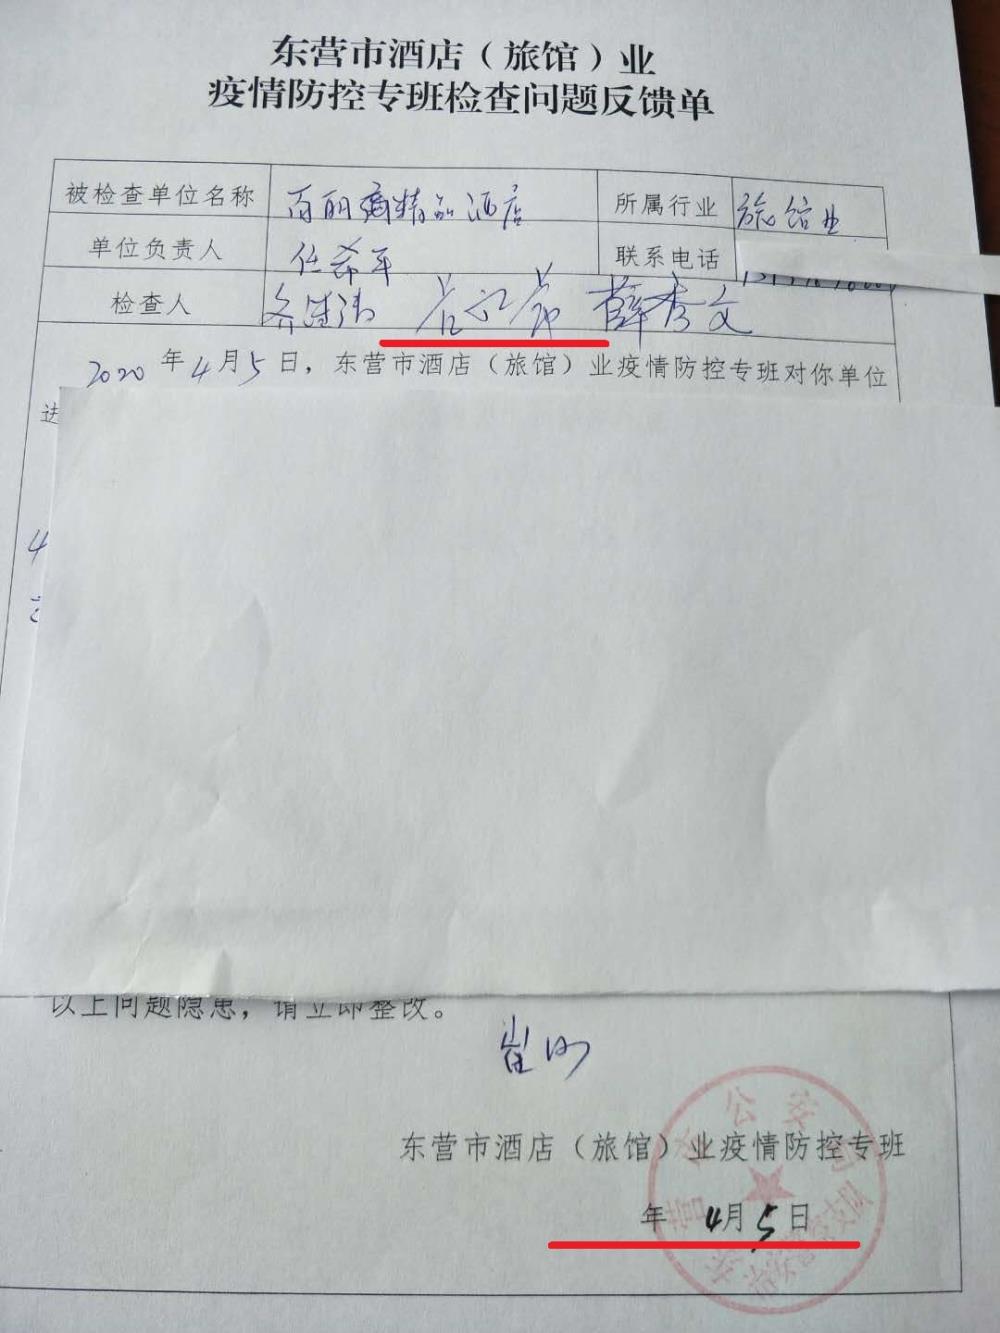 东营市酒店（旅馆）业
疫情防控专班检查问题反馈单
被检查单位名称 百丽湾精品酒店 所属行业 旅馆业
单位负责人 任希平 联系电话
检查人 薛秀文
2020年4月5日，东营市酒店（旅馆）业疫情防控专班对你单位
进
4
以上问题隐患，请立即整改。
东营市酒店（旅馆）业疫情防控专班
年 4月5日
东营市公安局
治安警察支队